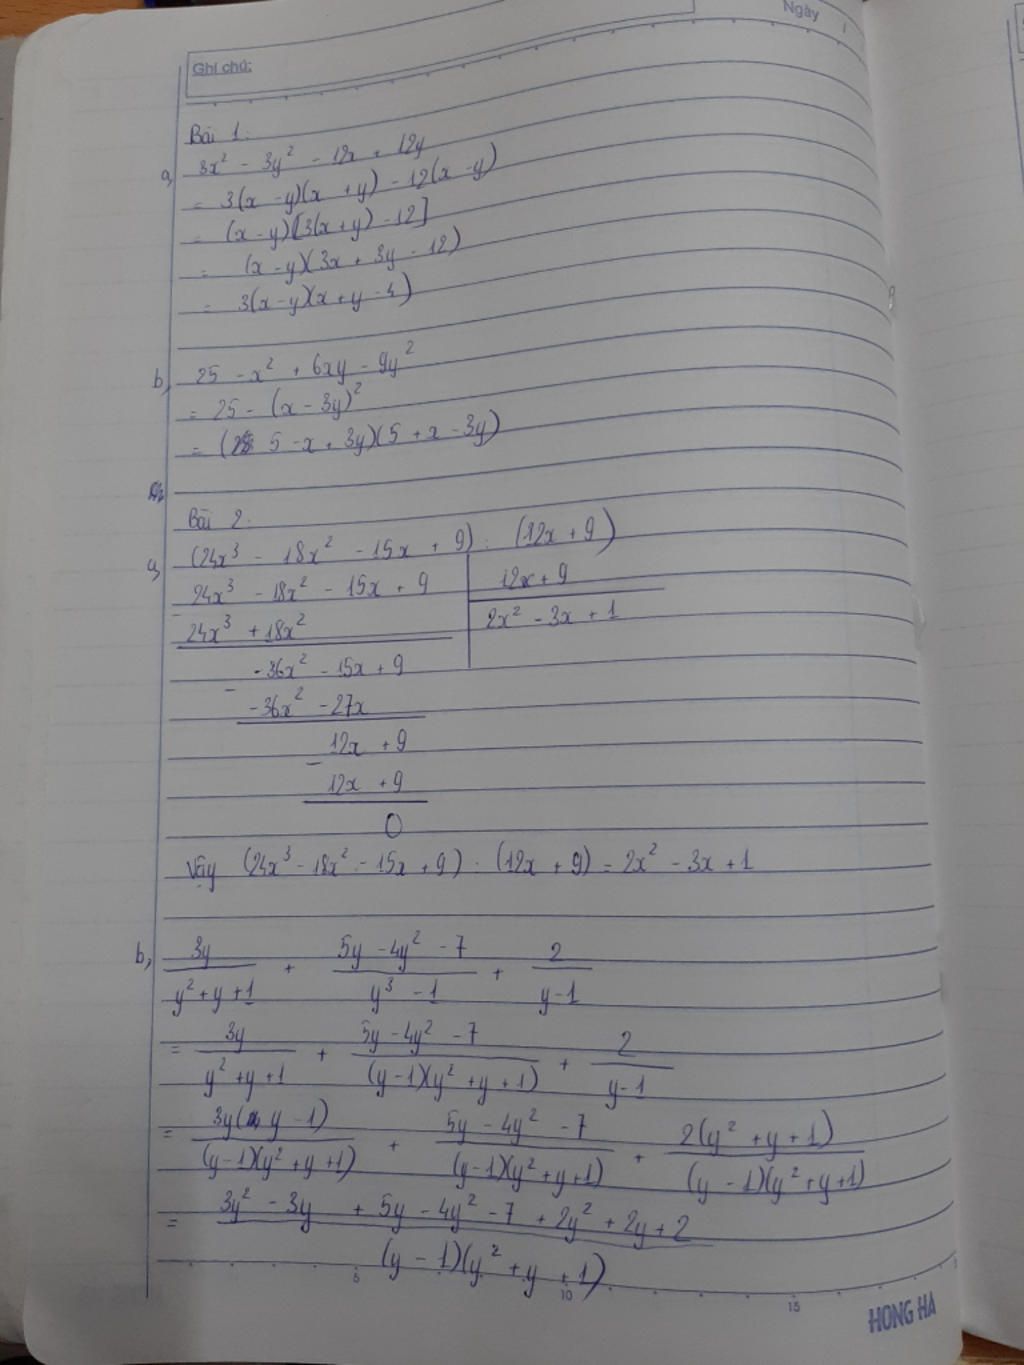 Ngày /
Ghi chú:
Bài 1:
a, 3x² - 3y² - 12x + 12y
= 3(x - y)(x + y) - 12(x - y)
= (x - y)[3(x + y) - 12]
= (x - y)(3x + 3y - 12)
= 3(x - y)(x + y - 4)
b, 25 - x² + 6xy - 9y²
= 25 - (x - 3y)²
= (5 - x + 3y)(5 + x - 3y)
Bài 2:
a, (24x³ - 18x² - 15x + 9) : (12x + 9)
24x³ - 18x² - 15x + 9 | 12x + 9
- 24x³ + 18x² | 2x² - 3x + 1
-36x² - 15x + 9
- -36x² - 27x
12x + 9
- 12x + 9
0
Vậy (24x³ - 18x² - 15x + 9) : (12x + 9) = 2x² - 3x + 1
b, 3y/(y² + y + 1) + (5y - 4y² - 7)/(y³ - 1) + 2/(y - 1)
= 3y/(y² + y + 1) + (5y - 4y² - 7)/((y - 1)(y² + y + 1)) + 2/(y - 1)
= 3y(y - 1)/((y - 1)(y² + y + 1)) + (5y - 4y² - 7)/((y - 1)(y² + y + 1)) + 2(y² + y + 1)/((y - 1)(y² + y + 1))
= (3y² - 3y + 5y - 4y² - 7 + 2y² + 2y + 2)/((y - 1)(y² + y + 1))
5 10 15
HONG HA